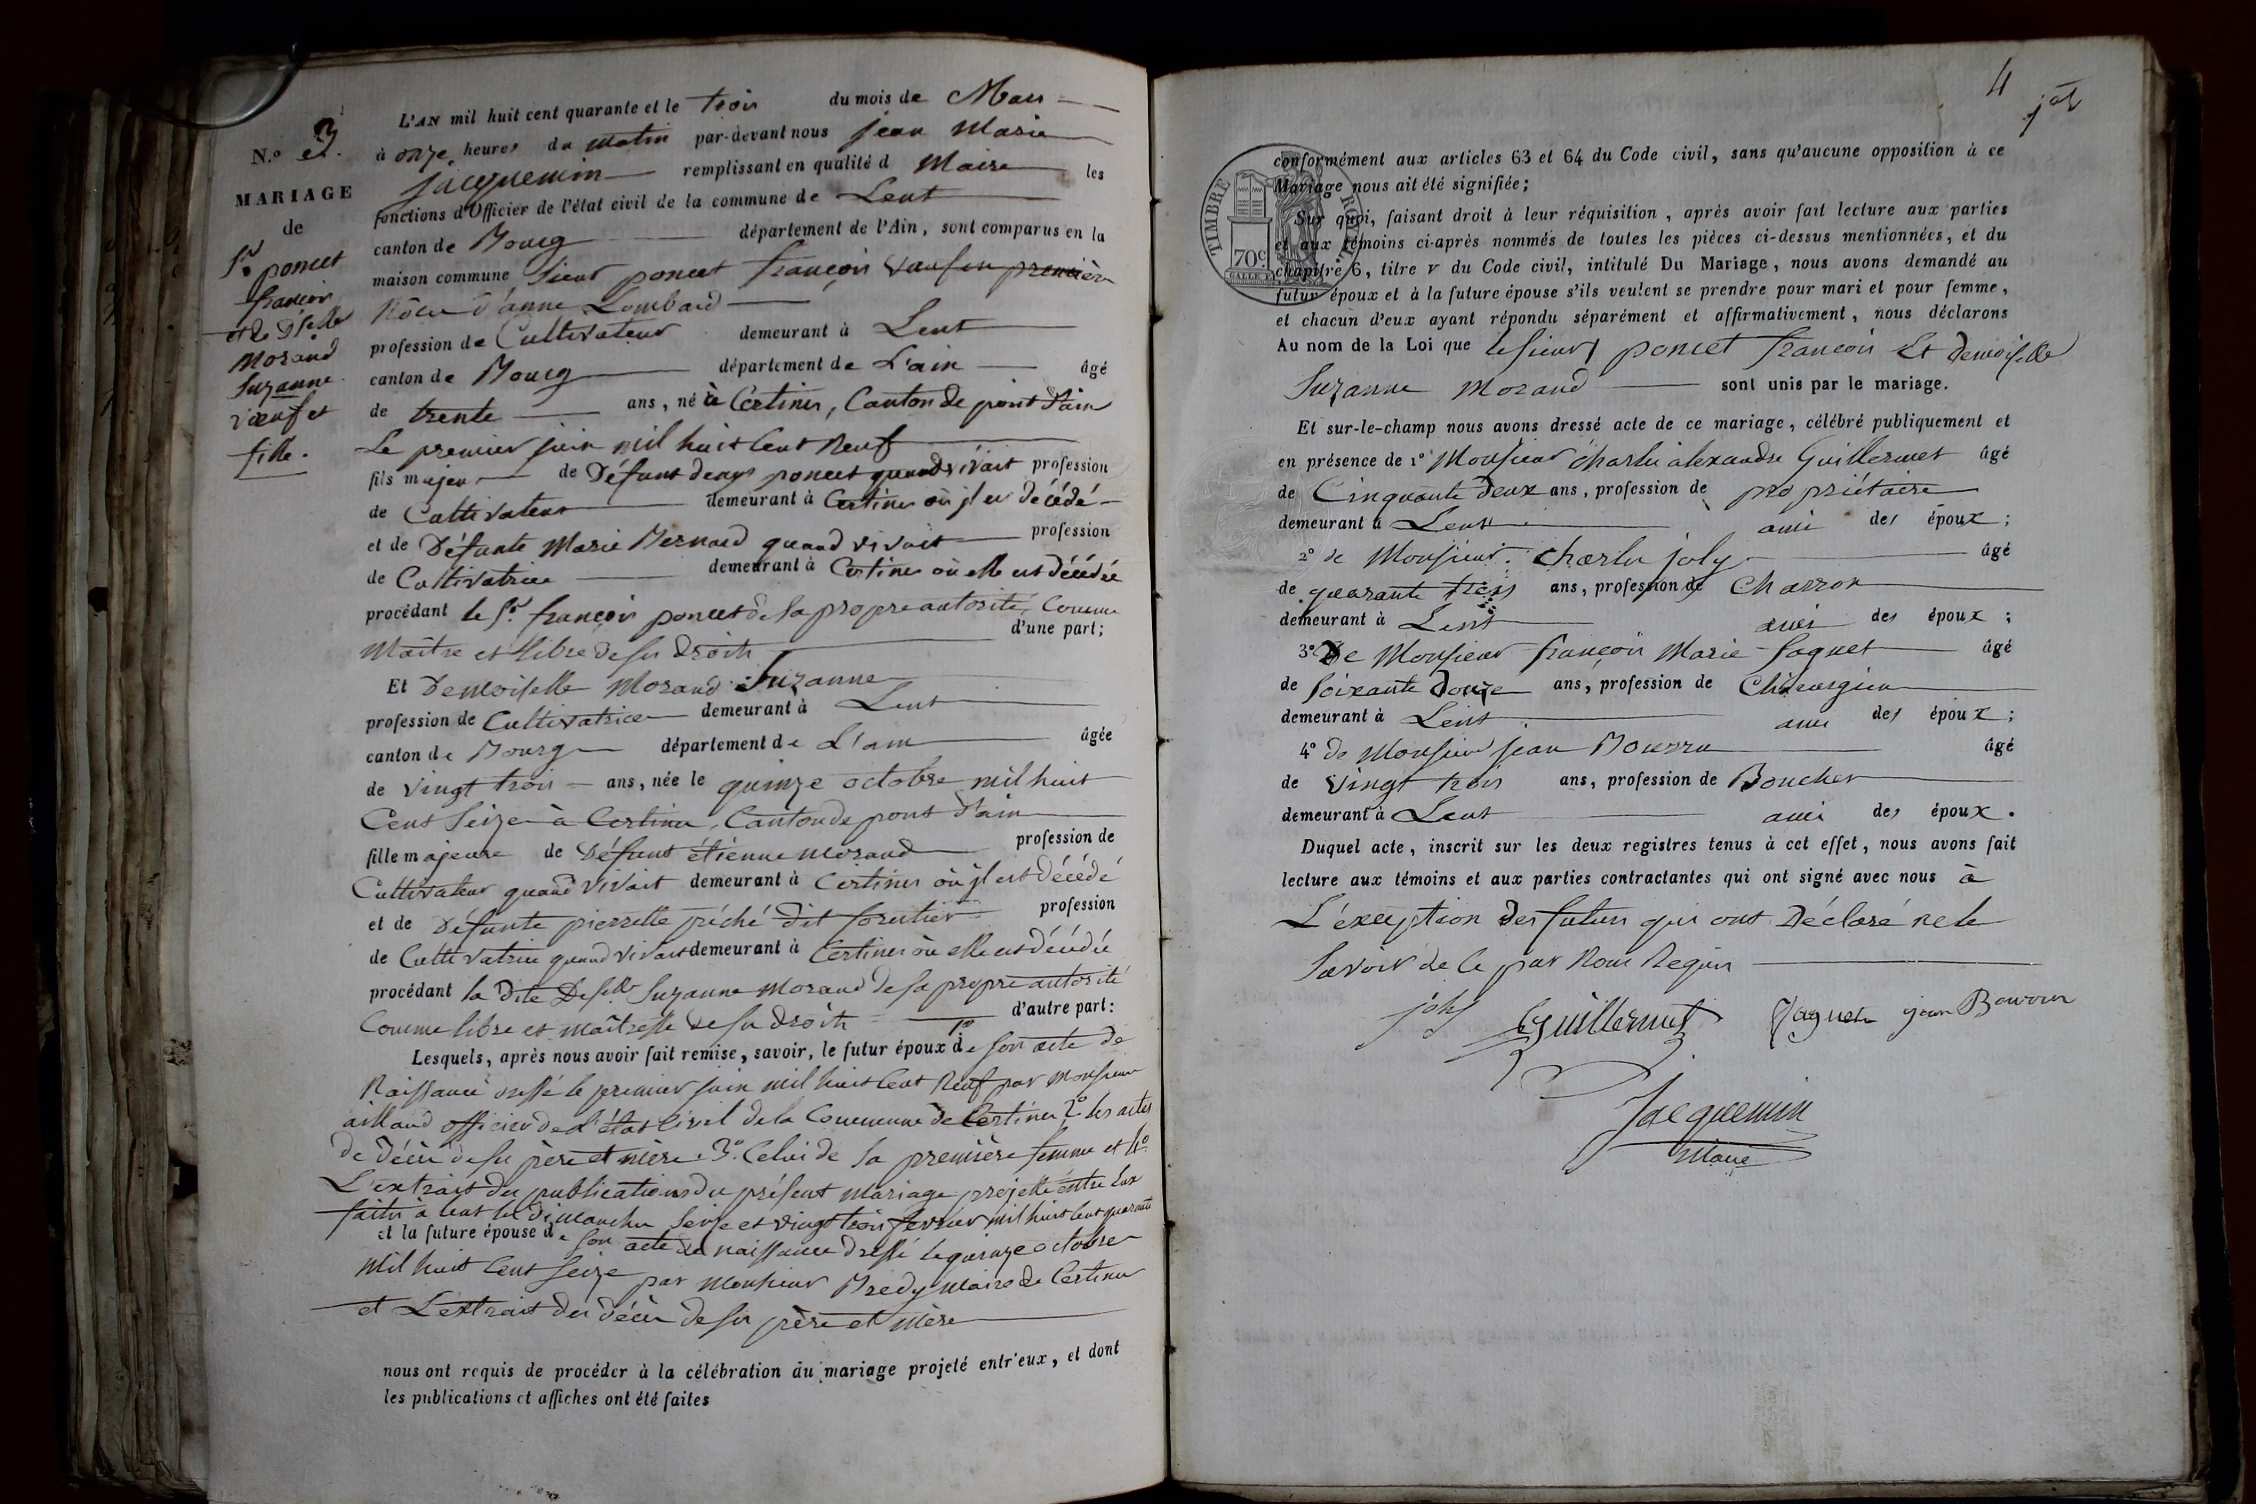 N.º 3.
MARIAGE
de
Sr. poncet
françois
et de Dselle
Morand
Suzanne
vœuf et
fille.
L'AN mil huit cent quarante et le trois du mois de Mars
à onze heures du matin par-devant nous jean Marie
Jacquemin remplissant en qualité d Maire les
fonctions d'Officier de l'état civil de la commune de Lent
canton de Bourg département de l'Ain, sont comparus en la
maison commune Sieur poncet françois vœuf en premières
Nôces d'anne Lombard
profession de Cultivateur demeurant à Lent
canton de Bourg département de L'ain âgé
de trente ans, né à Certines, Canton de pont d'ain
Le premier juin mil huit Cent Neuf
fils majeur de Défunt denys poncet quand vivait profession
de Cultivateur demeurant à Certines où jl est décédé
et de Défunte Marie Bernard quand vivait profession
de Cultivatrice demeurant à Certines où elle est décédée
procédant le Sr. françois poncet de sa propre autorité, Comme
d'une part;
Maître et libre de ses droits
Et Demoiselle Morand Suzanne
profession de Cultivatrice demeurant à Lent
canton de Bourg département de L'ain âgée
de vingt trois ans, née le quinze octobre mil huit
Cent Seize à Certines, Canton de pont d'ain
fille majeure de Défunt étienne Morand profession de
Cultivateur quand vivait demeurant à Certines où jl est décédé
et de Défunte pierrette péché dit forestier profession
de Cultivatrice quand vivait demeurant à Certines où elle est décédée
procédant la dite Deselle Suzanne Morand de sa propre autorité
Comme libre et maîtresse de ses droits d'autre part:
Lesquels, après nous avoir fait remise, savoir, le futur époux 1º de son acte de
Naissance dressé le premier juin mil huit Cent Neuf par Monsieur
ailland officier de L'état Civil de la Commune de Certines 2º les actes
de décès de ses père et mère 3º Celui de sa première femme et 4º
L'extrait des publications du présent mariage projetté entre Eux
faites à Lent les dimanches Seize et vingt trois fevrier mil huit Cent quarante
et la future épouse de son acte de naissance dressé le quinze octobre
mil huit Cent Seize par Monsieur Bredy Maire de Certines
et L'extrait des décès de ses père et mère
nous ont requis de procéder à la célébration du mariage projeté entr'eux, et dont
les publications et affiches ont été faites
4
TIMBRE ROYAL
70c
conformément aux articles 63 et 64 du Code civil, sans qu'aucune opposition à ce
Mariage nous ait été signifiée;
Sur quoi, faisant droit à leur réquisition, après avoir fait lecture aux parties
et aux témoins ci-après nommés de toutes les pièces ci-dessus mentionnées, et du
chapitre 6, titre v du Code civil, intitulé Du Mariage, nous avons demandé au
futur époux et à la future épouse s'ils veulent se prendre pour mari et pour femme,
et chacun d'eux ayant répondu séparément et affirmativement, nous déclarons
Au nom de la Loi que le sieur poncet françois Et demoiselle
Suzanne Morand sont unis par le mariage.
Et sur-le-champ nous avons dressé acte de ce mariage, célébré publiquement et
en présence de 1º Monsieur Charles alexandre Guillermet âgé
de Cinquante deux ans, profession de propriétaire
demeurant à Lent ami des époux;
2º de Monsieur Charles joly âgé
de quarante trois ans, profession de Charron
demeurant à Lent ami des époux;
3º De Monsieur françois Marie Saguet âgé
de Soixante douze ans, profession de Chirurgien
demeurant à Lent ami des époux;
4º de Monsieur jean Bouvru âgé
de vingt trois ans, profession de Boucher
demeurant à Lent ami des époux.
Duquel acte, inscrit sur les deux registres tenus à cet effet, nous avons fait
lecture aux témoins et aux parties contractantes qui ont signé avec nous à
L'éxception des futurs qui ont Déclaré ne le
Savoir de Ce par Nous Requis
joly Guillermet Saguet jean
Jacquemin
Maire